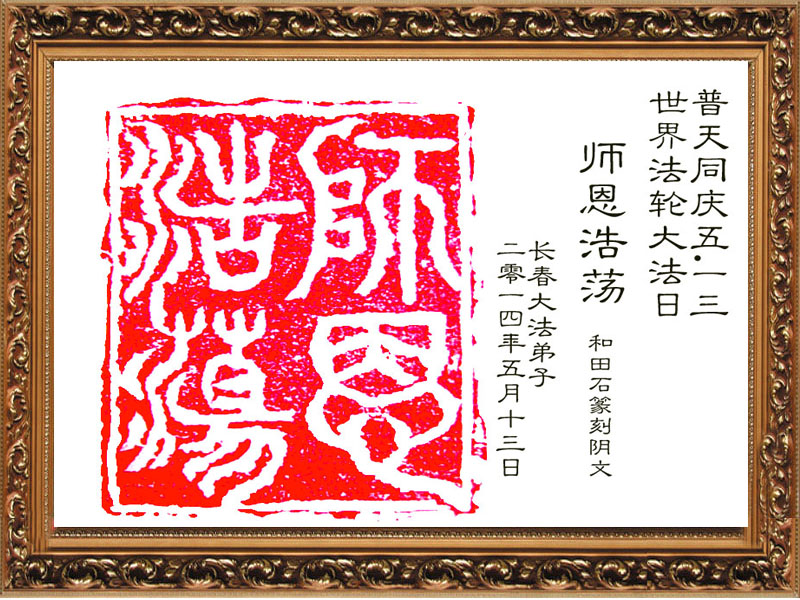 普天同庆五·一三
世界法轮大法日
师恩浩荡
和田石篆刻阴文
长春大法弟子
二零一四年五月十三日
師恩
浩蕩